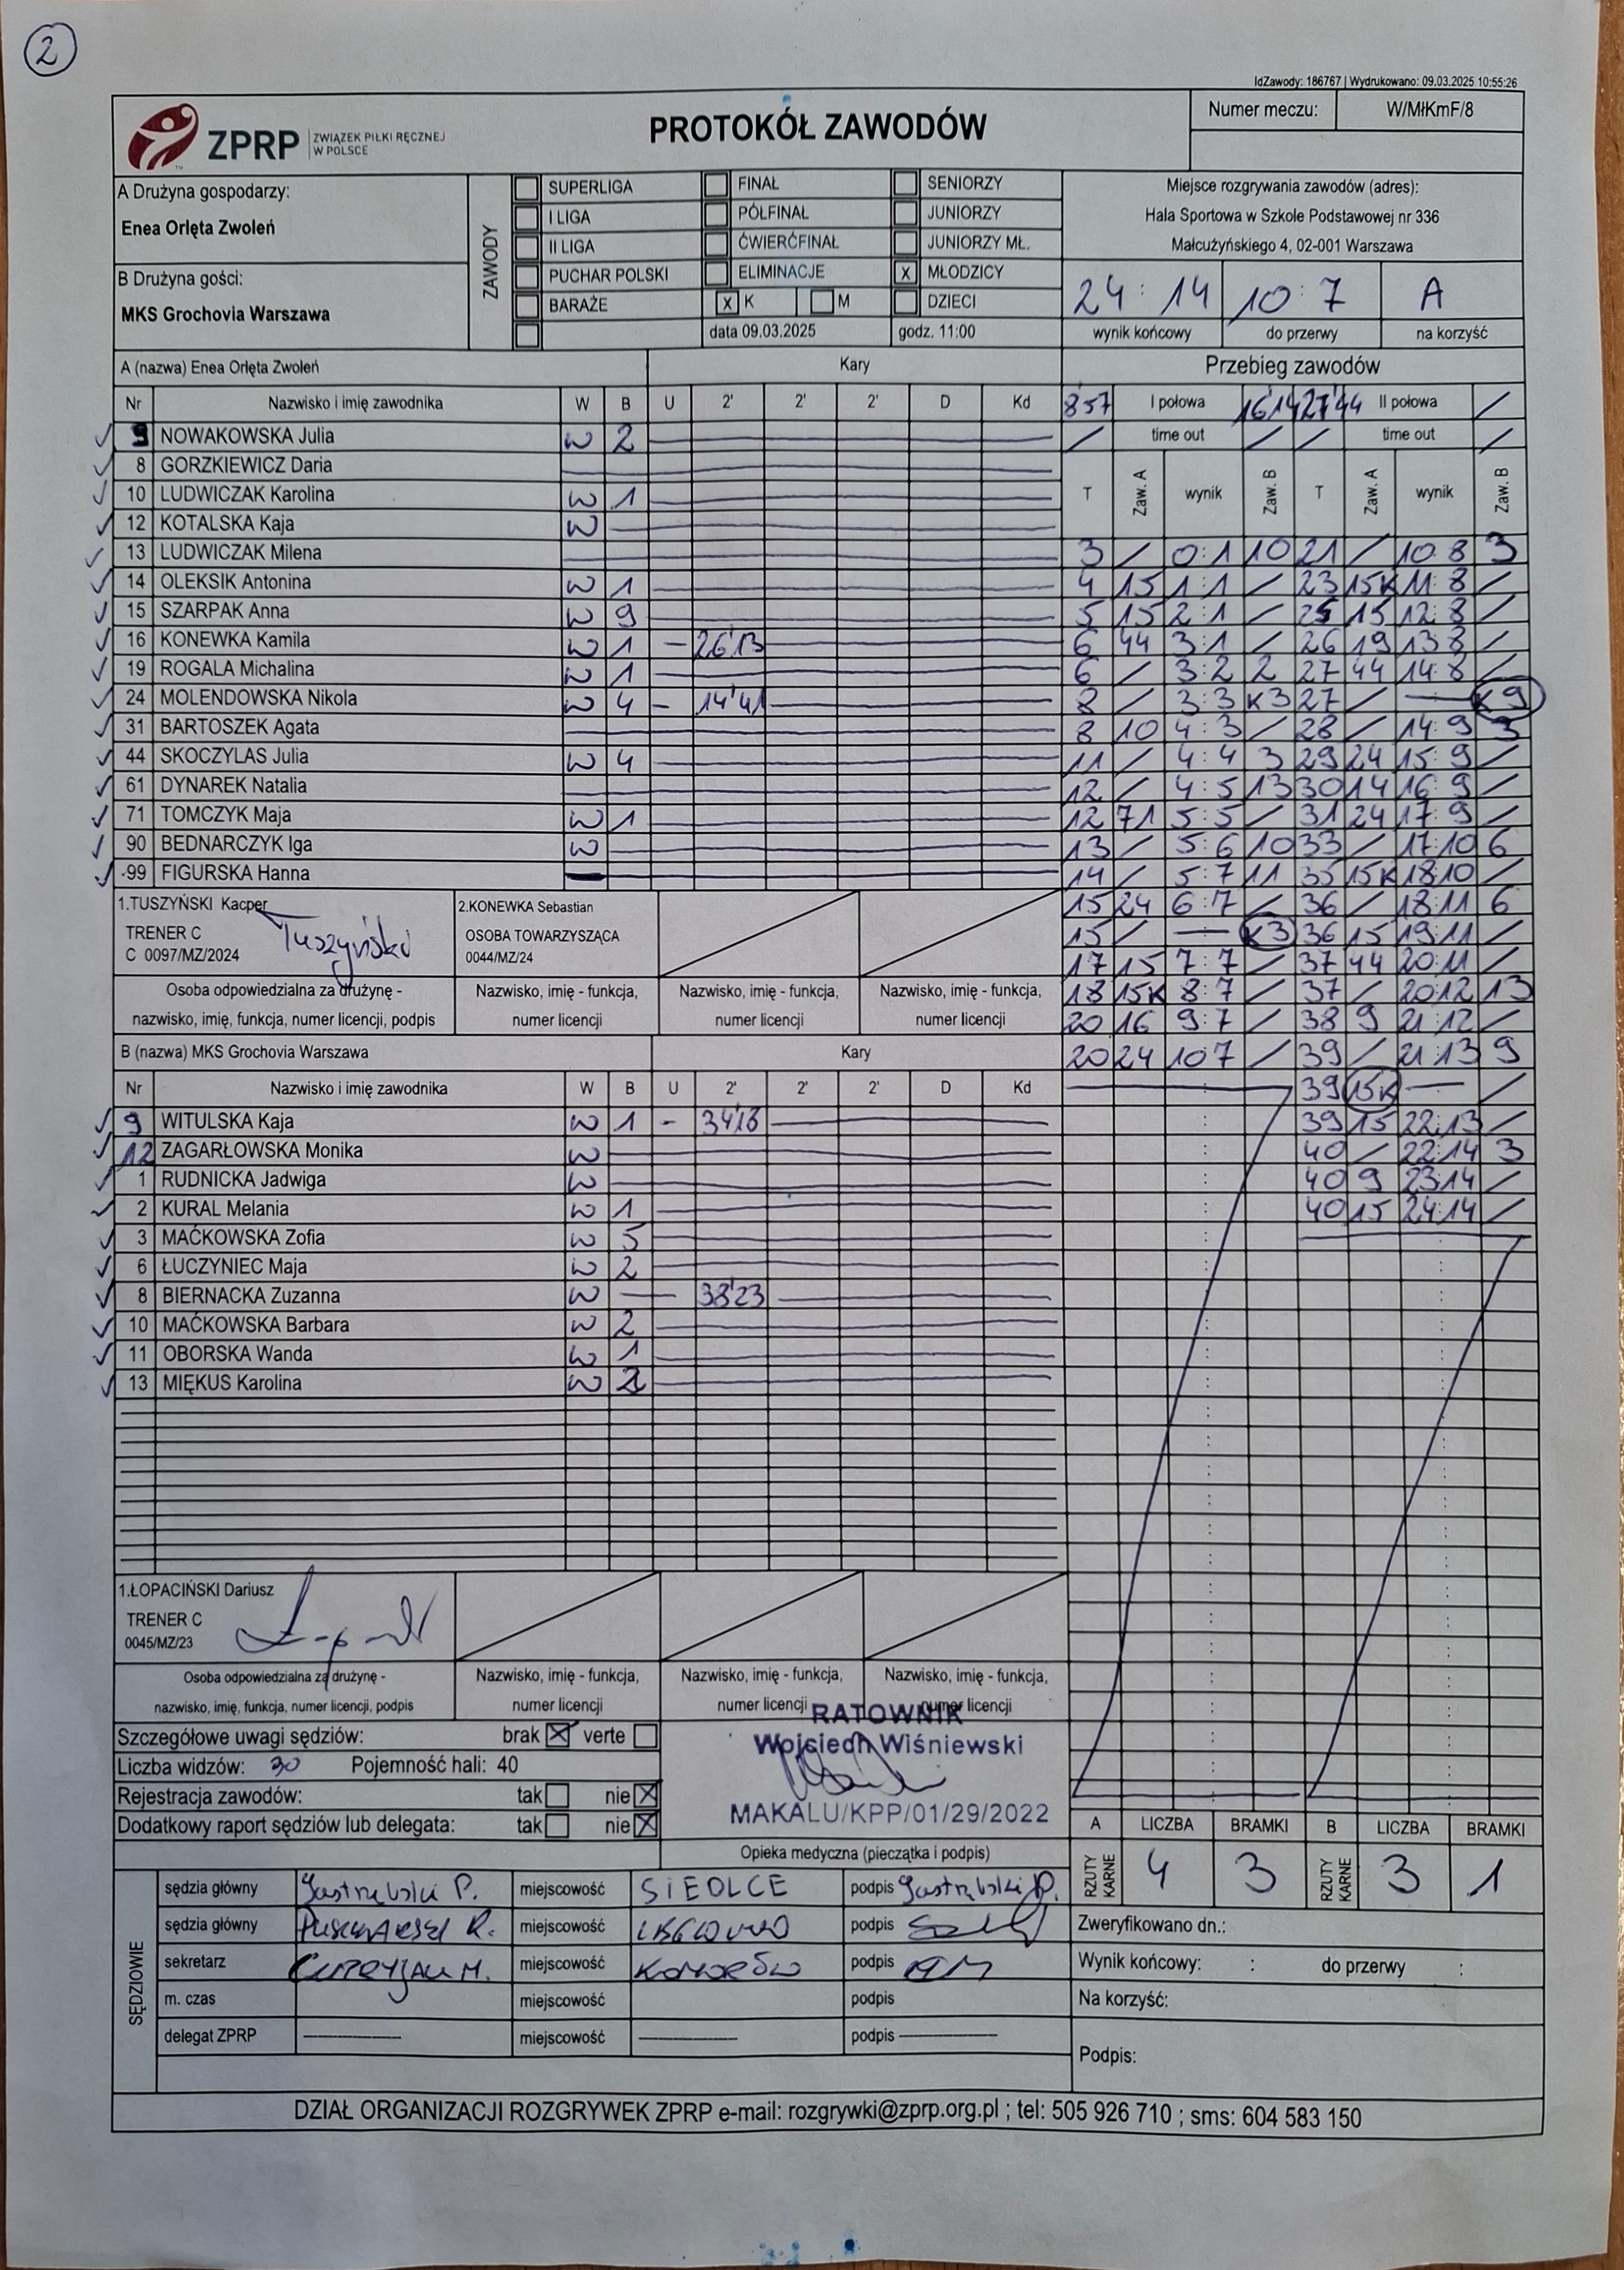 2
IdZawody: 186767 | Wydrukowano: 09.03.2025 10:55:26
ZPRP ZWIĄZEK PIŁKI RĘCZNEJ W POLSCE
PROTOKÓŁ ZAWODÓW
Numer meczu: W/MłKmF/8
A Drużyna gospodarzy:
Enea Orlęta Zwoleń
B Drużyna gości:
MKS Grochovia Warszawa
ZAWODY
SUPERLIGA FINAŁ SENIORZY
I LIGA PÓŁFINAŁ JUNIORZY
II LIGA ĆWIERĆFINAŁ JUNIORZY MŁ.
PUCHAR POLSKI ELIMINACJE X MŁODZICY
BARAŻE X K M DZIECI
data 09.03.2025 godz. 11:00
Miejsce rozgrywania zawodów (adres):
Hala Sportowa w Szkole Podstawowej nr 336
Małcużyńskiego 4, 02-001 Warszawa
24 : 14 10 : 7 A
wynik końcowy do przerwy na korzyść
A (nazwa) Enea Orlęta Zwoleń Kary
Nr Nazwisko i imię zawodnika W B U 2' 2' 2' D Kd
9 NOWAKOWSKA Julia W 2
8 GORZKIEWICZ Daria
10 LUDWICZAK Karolina W 1
12 KOTALSKA Kaja W
13 LUDWICZAK Milena
14 OLEKSIK Antonina W 1
15 SZARPAK Anna W 9
16 KONEWKA Kamila W 1 - 26'13
19 ROGALA Michalina W 1
24 MOLENDOWSKA Nikola W 4 - 14'41
31 BARTOSZEK Agata
44 SKOCZYLAS Julia W 4
61 DYNAREK Natalia
71 TOMCZYK Maja W 1
90 BEDNARCZYK Iga W
99 FIGURSKA Hanna
1.TUSZYŃSKI Kacper
TRENER C
C 0097/MZ/2024
Tuszyński
2.KONEWKA Sebastian
OSOBA TOWARZYSZĄCA
0044/MZ/24
Osoba odpowiedzialna za drużynę - Nazwisko, imię - funkcja, Nazwisko, imię - funkcja, Nazwisko, imię - funkcja,
nazwisko, imię, funkcja, numer licencji, podpis numer licencji numer licencji numer licencji
B (nazwa) MKS Grochovia Warszawa Kary
Nr Nazwisko i imię zawodnika W B U 2' 2' 2' D Kd
9 WITULSKA Kaja W 1 -
12 ZAGARŁOWSKA Monika W
1 RUDNICKA Jadwiga W
2 KURAL Melania W 1
3 MAĆKOWSKA Zofia W 5
6 ŁUCZYNIEC Maja W 2
8 BIERNACKA Zuzanna W 38'23
10 MAĆKOWSKA Barbara W 2
11 OBORSKA Wanda W 1
13 MIĘKUS Karolina W 2
1.ŁOPACIŃSKI Dariusz
TRENER C
0045/MZ/23
Osoba odpowiedzialna za drużynę - Nazwisko, imię - funkcja, Nazwisko, imię - funkcja, Nazwisko, imię - funkcja,
nazwisko, imię, funkcja, numer licencji, podpis numer licencji numer licencji numer licencji
Przebieg zawodów
8 57 I połowa 16'14 27'44 II połowa /
/ time out / / time out /
T Zaw. A wynik Zaw. B T Zaw. A wynik Zaw. B
3 / 0:1 10 21 / 10:8 3
4 15 1:1 / 23 15K 11:8 /
5 15 2:1 / 25 15 12:8 /
6 44 3:1 / 26 19 13:8 /
6 / 3:2 2 27 44 14:8 /
8 / 3:3 K3 27 / — K9
8 10 4:3 / 28 / 14:9 3
11 / 4:4 3 29 24 15:9 /
12 / 4:5 13 30 14 16:9 /
12 71 5:5 / 31 24 17:9 /
13 / 5:6 10 33 / 17:10 6
14 / 5:7 11 35 15K 18:10 /
15 24 6:7 / 36 / 18:11 6
15 / — K3 36 15 19:11 /
17 15 7:7 / 37 44 20:11 /
18 15K 8:7 / 37 / 20:12 13
20 16 9:7 / 38 9 21:12 /
20 24 10:7 / 39 / 21:13 9
39 15K — /
39 15 22:13 /
40 / 22:14 3
40 9 23:14 /
40 15 24:14 /
Szczegółowe uwagi sędziów: brak X verte
Liczba widzów: 30 Pojemność hali: 40
Rejestracja zawodów: tak nie X
Dodatkowy raport sędziów lub delegata: tak nie X
RATOWNIK
Wojciech Wiśniewski
MAKALU/KPP/01/29/2022
Opieka medyczna (pieczątka i podpis)
A LICZBA BRAMKI B LICZBA BRAMKI
RZUTY KARNE 4 3 RZUTY KARNE 3 1
SĘDZIOWIE
sędzia główny Jastrzębski P. miejscowość SIEDLCE podpis Jastrzębski P.
sędzia główny miejscowość podpis
sekretarz miejscowość KOMORÓW podpis
m. czas miejscowość podpis
delegat ZPRP miejscowość podpis
Zweryfikowano dn.:
Wynik końcowy: : do przerwy :
Na korzyść:
Podpis:
DZIAŁ ORGANIZACJI ROZGRYWEK ZPRP e-mail: rozgrywki@zprp.org.pl ; tel: 505 926 710 ; sms: 604 583 150